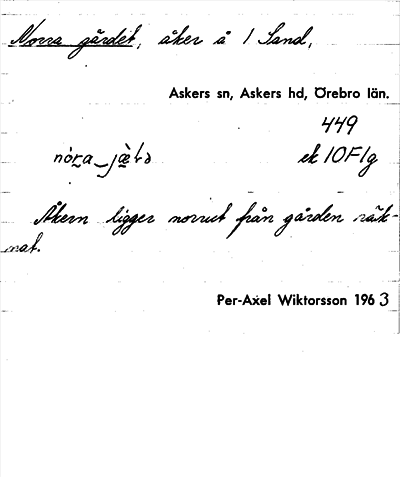 Norra gärdet, åker å 1 Sand,
Askers sn, Askers hd, Örebro län.
449
nòra jæ̀ ek 10F1g
Åkern ligger norrut från gården räk-
nat.
Per-Axel Wiktorsson 1963